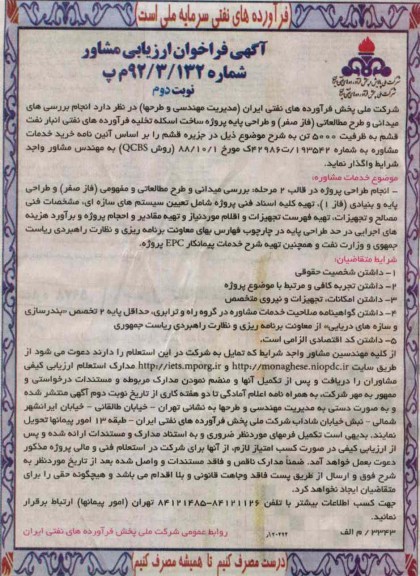 فرآورده های نفتی سرمایه ملی است
آگهی فراخوان ارزیابی مشاور
شماره ۹۲/۳/۱۳۲م پ
نوبت دوم
شرکت ملی پخش فرآورده های نفتی ایران (مدیریت مهندسی و طرحها) در نظر دارد انجام بررسی های
میدانی و طرح مطالعاتی (فاز صفر) و طراحی پایه پروژه ساخت اسکله تخلیه فرآورده های نفتی انبار نفت
قشم به ظرفیت ۵۰۰۰ تن به شرح موضوع ذیل در جزیره قشم را بر اساس آئین نامه خرید خدمات
مشاوره به شماره ۱۹۳۵۴۲/ت۴۲۹۸۶ک مورخ ۸۸/۱۰/۱ (روش QCBS) به مهندس مشاور واجد
شرایط واگذار نماید.
موضوع خدمات مشاوره:
- انجام طراحی پروژه در قالب ۲ مرحله: بررسی میدانی و طرح مطالعاتی و مفهومی (فاز صفر) و طراحی
پایه و بنیادی (فاز ۱)، تهیه کلیه اسناد فنی پروژه شامل تعیین سیستم های سازه ای، مشخصات فنی
مصالح و تجهیزات، تهیه فهرست تجهیزات و اقلام موردنیاز و تهیه مقادیر و احجام پروژه و برآورد هزینه
های اجرایی در حد طراحی پایه در چارچوب فهارس بهای معاونت برنامه ریزی و نظارت راهبردی ریاست
جمهوی و وزارت نفت و همچنین تهیه شرح خدمات پیمانکار EPC پروژه.
شرایط متقاضیان:
۱- داشتن شخصیت حقوقی
۲- داشتن تجربه کافی و مرتبط با موضوع پروژه
۳- داشتن امکانات، تجهیزات و نیروی متخصص
۴- داشتن گواهینامه صلاحیت خدمات مشاوره در گروه راه و ترابری، حداقل پایه ۲ تخصص «بندرسازی
و سازه های دریایی» از معاونت برنامه ریزی و نظارت راهبردی ریاست جمهوری
۵- داشتن کد اقتصادی الزامی است.
از کلیه مهندسین مشاور واجد شرایط که تمایل به شرکت در این استعلام را دارند دعوت می شود از
طریق سایت http://monaghese.niopdc.ir و http://iets.mporg.ir مدارک استعلام ارزیابی کیفی
مشاوران را دریافت و پس از تکمیل آنها و منضم نمودن مدارک مربوطه و مستندات درخواستی و
ممهور به مهر شرکت، به همراه نامه اعلام آمادگی تا دو هفته کاری از تاریخ نوبت دوم آگهی منتشر شده
و به صورت دستی به مدیریت مهندسی و طرحها به نشانی تهران - خیابان طالقانی - خیابان ایرانشهر
شمالی - نبش خیابان شاداب شرکت ملی پخش فرآورده های نفتی ایران - طبقه ۱۳ امور پیمانها تحویل
نمایند. بدیهی است تکمیل فرمهای موردنظر ضروری و به استناد مدارک و مستندات ارائه شده و پس
از ارزیابی کیفی در صورت کسب امتیاز لازم، از آنها برای شرکت در استعلام فنی و مالی پروژه مذکور
دعوت بعمل خواهد آمد. ضمناً مدارک ناقص و فاقد مستندات و واصل شده بعد از تاریخ موردنظر به
شرح فوق و ارسال از طریق پست فاقد وجاهت قانونی و بلا اقدام می باشد و هیچگونه حقی را برای
متقاضیان ایجاد نخواهد کرد.
جهت کسب اطلاعات بیشتر با تلفن ۸۴۱۲۱۱۲۶-۸۴۱۲۱۴۸۵ تهران (امور پیمانها) ارتباط برقرار
نمائید.
۳۳۴۳ / م الف
روابط عمومی شرکت ملی پخش فرآورده های نفتی ایران
درست مصرف کنیم تا همیشه مصرف کنیم